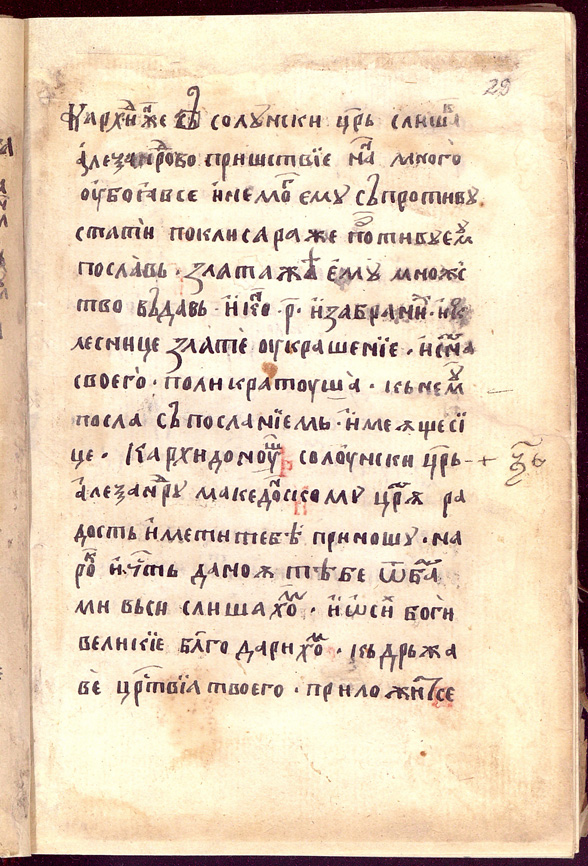 29
Кархиⷣнже въ солꙋнски цр҃ь слишаⷡ
але҆ѯанⷣрово пришствїе на много
оубоꙗвсе и немоⷢ ємꙋ съпротивꙋ
стати поклисараже потивꙋ емꙋ
пославь · злата же емꙋ множс
тво въдавь · и кѡⷩ · р҃ · изабрани · и ко
леснице злате оукрашенїе · и сн҃а
своего · поликратоуша · кь немꙋ
посла съ посланїемь · имеꙗщесї
це · Кархидоноуⷲ солоунски цр҃ь
але҆ѯанⷣрꙋ македоⷩскомꙋ цр҃ꙗ ра
дость и метитебѣ приношꙋ · на
роⷦ и чⷭ҇ть дамоꙗ тѣбе ѿ бг҃а
ми вьси слишахоⷨ · и ѡси боги
великїе бл҃годарихоⷨ · кь дрьжа
ве црⷭ҇твїꙗ твоего · приложитсе